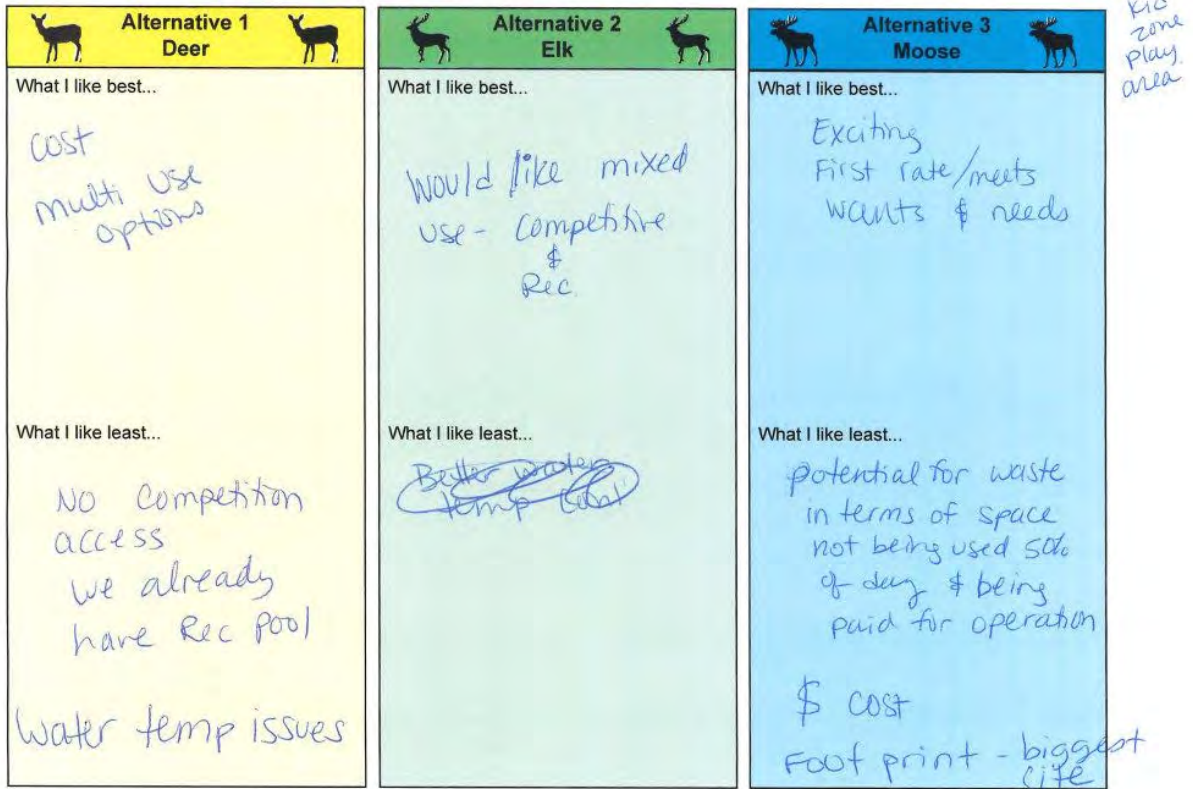 Alternative 1
Deer
What I like best...
cost
multi use
options
What I like least...
No Competition
access
we already
have Rec pool
water temp issues
Alternative 2
Elk
What I like best...
would like mixed
use - Competitive
&
Rec.
What I like least...
Better water
temp
Alternative 3
Moose
What I like best...
Exciting
First rate/meets
wants & needs
What I like least...
potential for waste
in terms of space
not being used 50%
of day & being
paid for operation
$ cost
Foot print - biggest
kid
zone
play
area